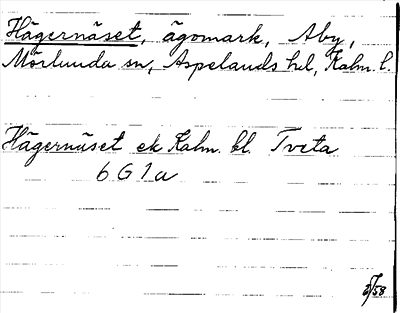 Hägernäset, ägomark, Åby,
Mörlunda sn, Aspelands hd, Kalm. l.
Hägernäset ek Kalm. bl. Tveta
6 G 1 a